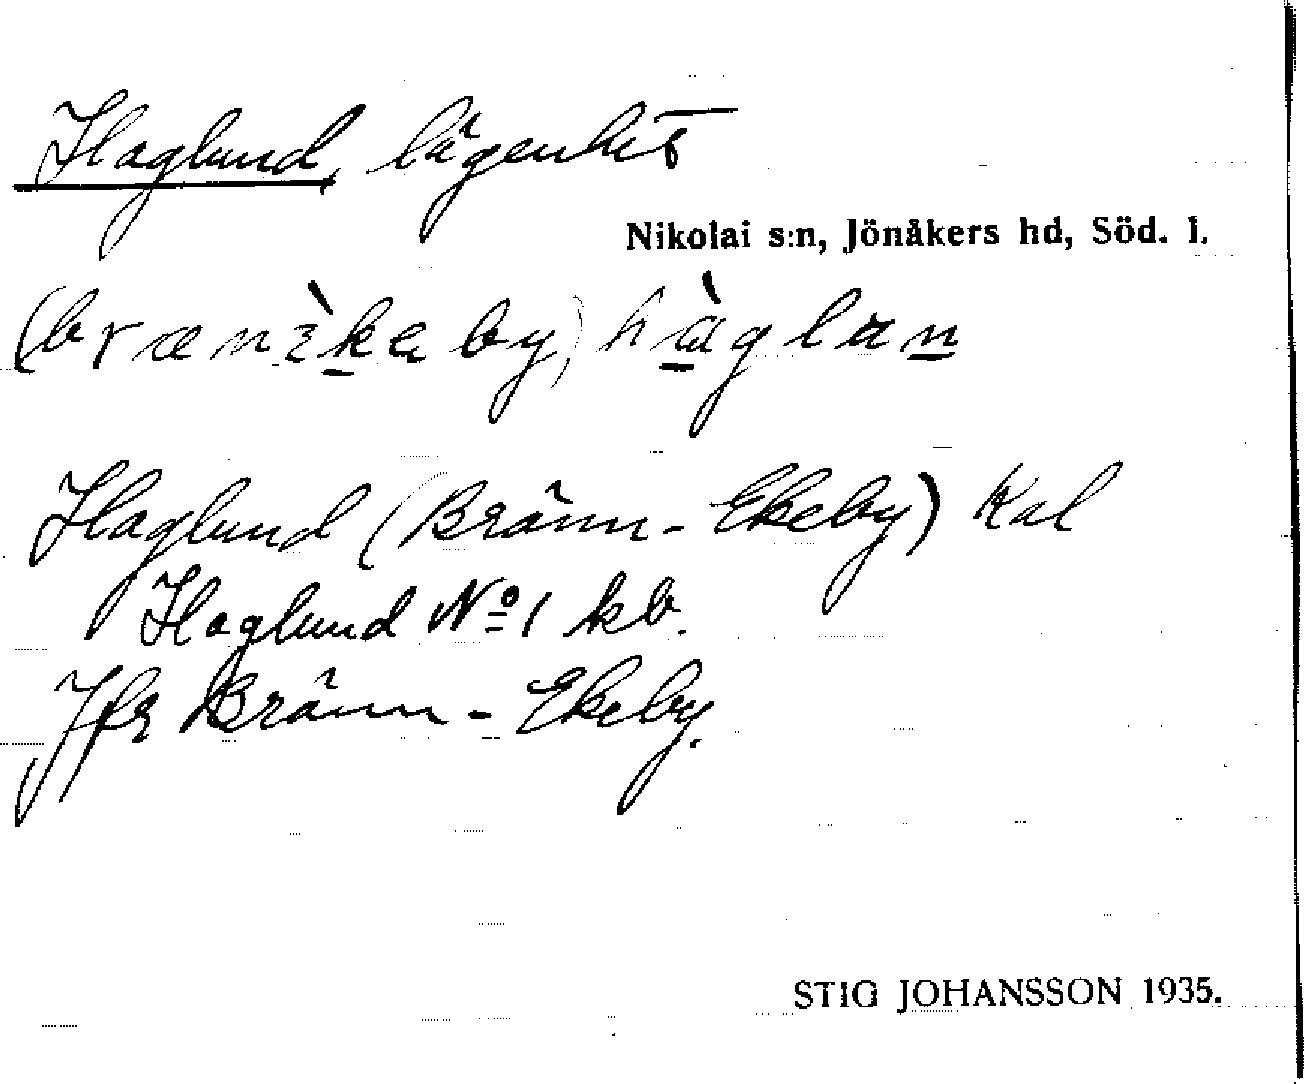 Haglund, lägenhet
Nikolai s:n, Jönåkers hd, Söd. l.
hàglun
Haglund (Bränn-Ekeby) Kal
Haglund No 1 kb.
Jfr Bränn-Ekeby.
STIG JOHANSSON 1935.